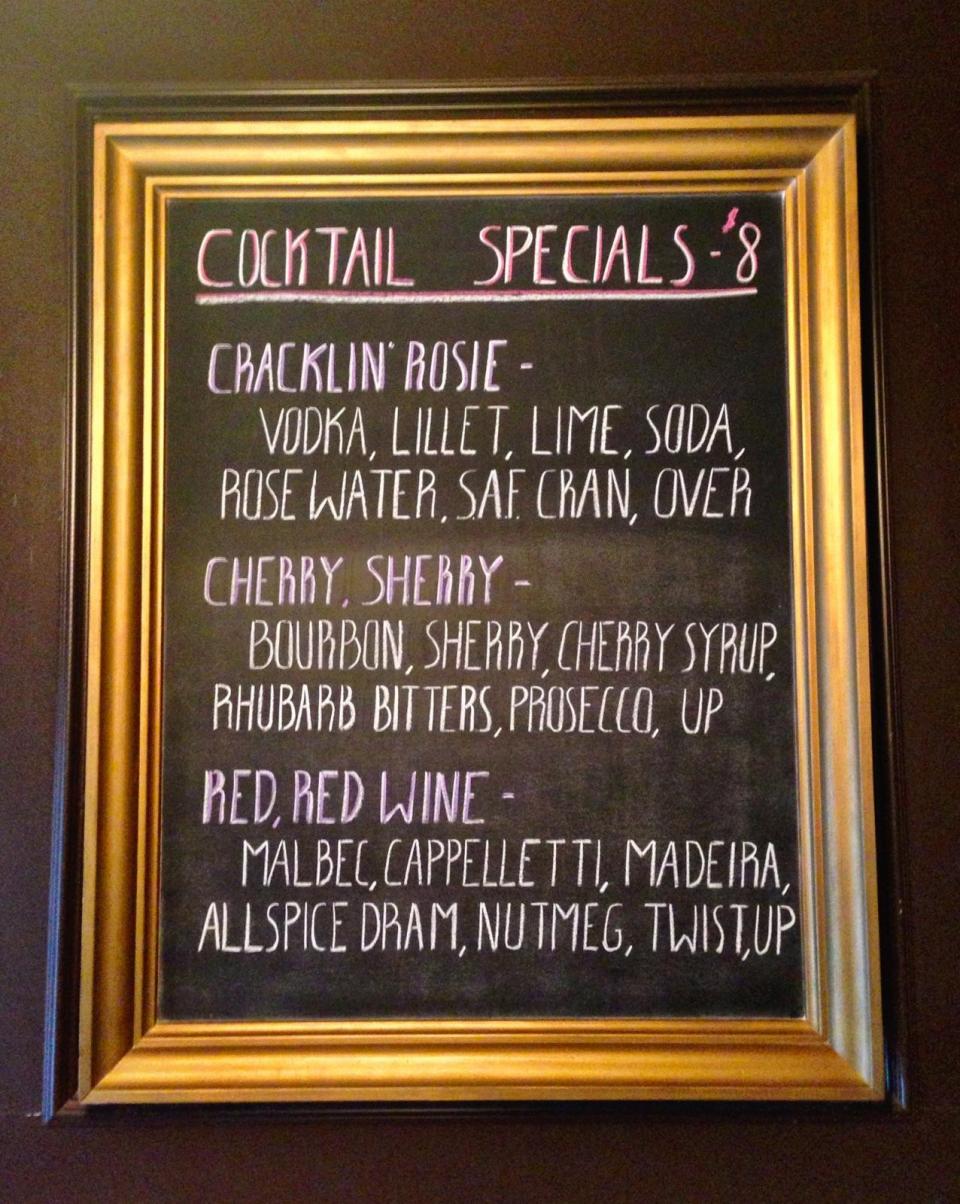 COCKTAIL SPECIALS - $8
CRACKLIN' ROSIE -
VODKA, LILLET, LIME, SODA,
ROSE WATER, S.A.F. CRAN, OVER
CHERRY, SHERRY -
BOURBON, SHERRY, CHERRY SYRUP,
RHUBARB BITTERS, PROSECCO, UP
RED, RED WINE -
MALBEC, CAPPELLETTI, MADEIRA,
ALLSPICE DRAM, NUTMEG, TWIST, UP